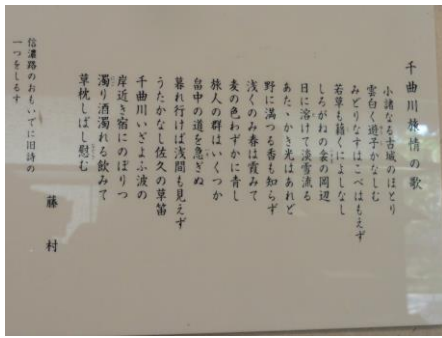 千曲川旅情の歌
小諸なる古城のほとり
雲白く遊子かなしむ
みどりなすはこべはもえず
若草も藉くによしなし
しろがねの衾の岡辺
日に溶けて淡雪流る
あたゝかき光はあれど
野に満つる香も知らず
浅くのみ春は霞みて
麦の色わずかに青し
旅人の群はいくつか
畠中の道を急ぎぬ
暮れ行けば浅間も見えず
うたかなし佐久の草笛
千曲川いざよふ波の
岸近き宿にのぼりつ
濁り酒濁れる飲みて
草枕しばし慰む
藤村
信濃路のおもいでに旧詩の
一つをしるす